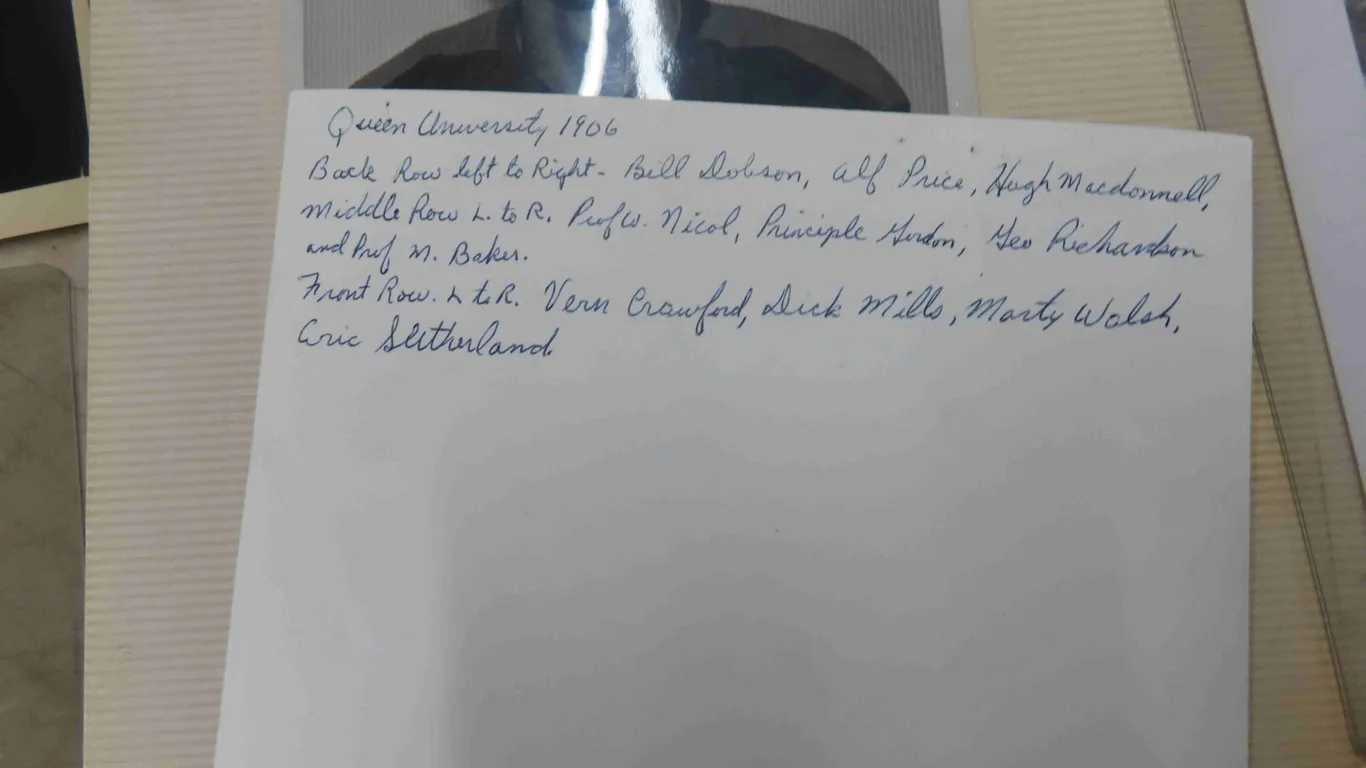 Queen University 1906
Back Row left to Right - Bill Dobson, Alf Price, Hugh Macdonnell,
Middle Row L. to R. Prof W. Nicol, Principle Gordon, Geo Richardson
and Prof M. Baker.
Front Row. L to R. Vern Crawford, Dick Mills, Marty Walsh,
Eric Sutherland